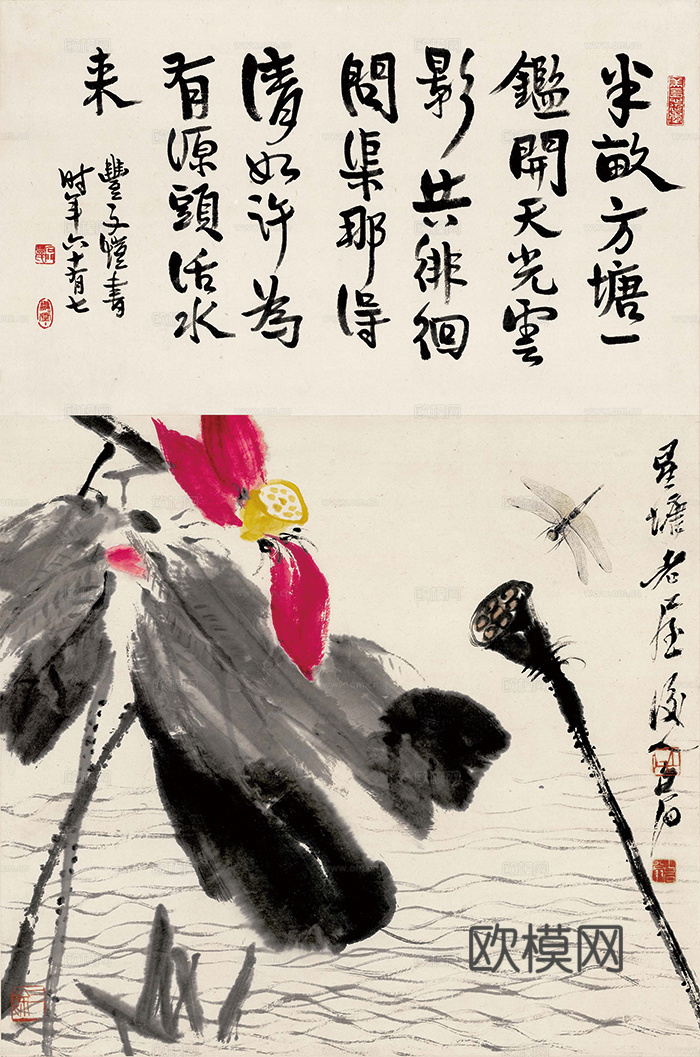 半畝方塘一
鑑開天光雲
影共徘徊
問渠那得
清如许為
有源頭活水
来
豐子愷書
时年六十有七
星塘老屋後人白石
欧模网